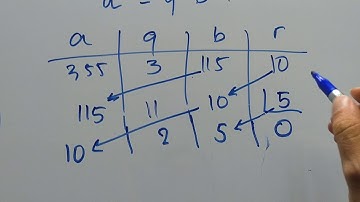 a q b r
355 3 115 10
115 11 10 5
10 2 5 0